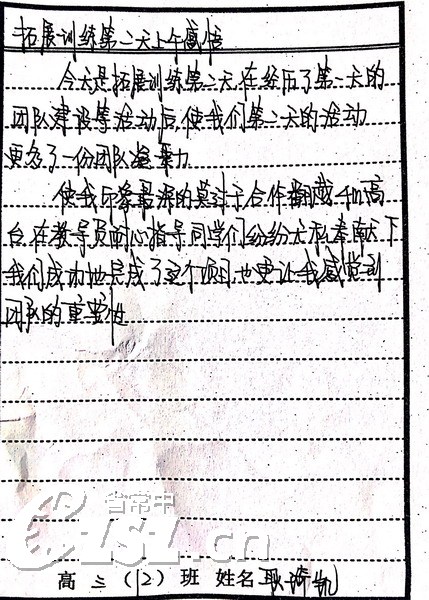 拓展训练第二天上午感悟
今天是拓展训练第二天,在经历了第一天的
团队建设等活动后,使我们第二天的活动
更多了一份团队凝聚力
使我印象最深的莫过于合作翻越
台,在教导员耐心指导同学们纷纷无私奉献下
我们成功地完成了这个项目,也更让我感觉到
团队的重要性
省常中
121.cn
高三(12)班 姓名 耿